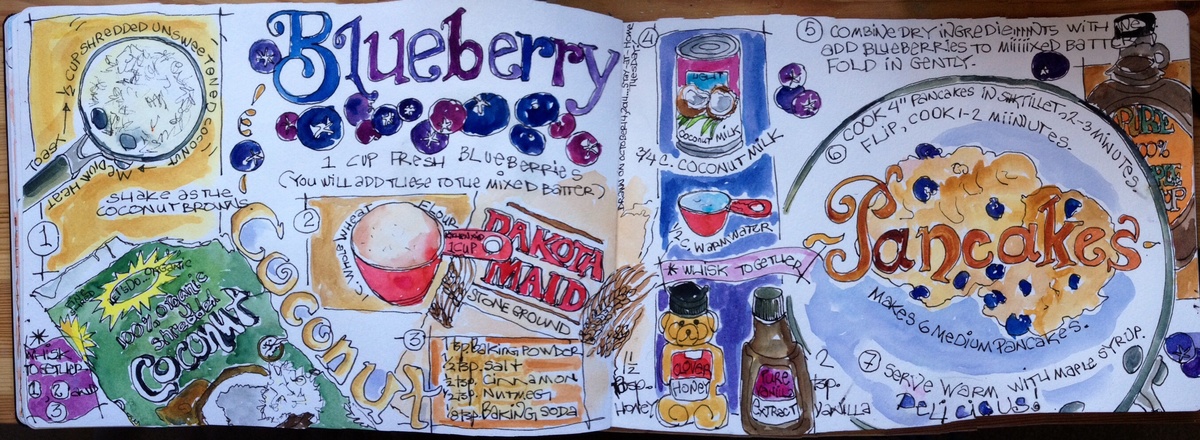 Blueberry
Coconut
Pancakes
1/2 CUP SHREDDED UNSWEETENED COCONUT
TOAST
MEDIUM HEAT
SHAKE AS THE
COCONUT BROWNS
1
ORGANIC
100% ORGANIC
Shredded
Coconut
* WHISK
TOGETHER
1, 2 and
3
1 CUP FRESH BLUEBERRIES
(YOU WILL ADD THESE TO THE MIXED BATTER)
2
1 C. WHOLE WHEAT FLOUR
1 CUP
DAKOTA
MAID
STONE GROUND
3
1 tsp. BAKING POWDER
1/2 tsp. SALT
1/2 tsp. CINNAMON
1/2 tsp. NUTMEG
1/8 tsp. BAKING SODA
4
LIGHT
COCONUT MILK
3/4 C. COCONUT MILK
1/2 C. WARM WATER
* WHISK TOGETHER
CLOVER
HONEY
1 1/2
HONEY
PURE
VANILLA
EXTRACT
1/2
tsp.
VANILLA
5 COMBINE DRY INGREDIEMMNTS WITH
ADD BLUEBERRIES TO MIIIIXED BATTER
FOLD IN GENTLY.
6 COOK 4" PANCAKES IN SKILLET, 2-3 MINUTES,
FLIP, COOK 1-2 MIINUTES.
MAKES 6 MEDIUM PANCAKES.
7 SERVE WARM WITH MAPLE SYRUP.
DELICIOUS!
PURE
100%